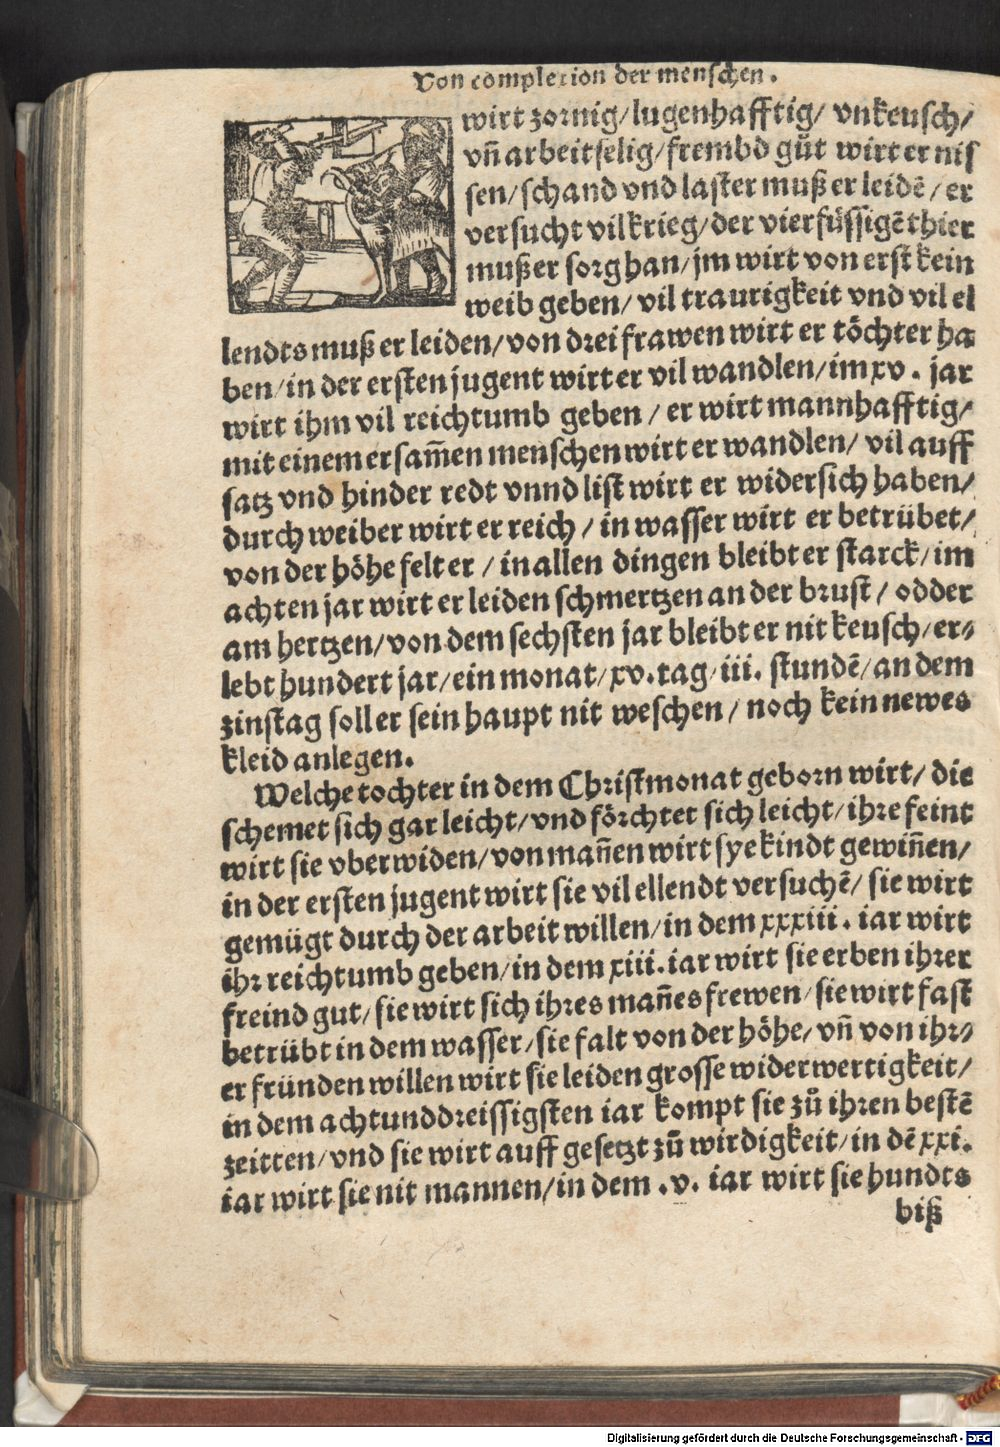 Von complexion der menschen.
wirt zornig/lugenhafftig/ vnkeusch/
vñ arbeitselig/frembd gůt wirt er nis
sen/schand vnd laster muß er leidē/er
versucht vil krieg/der vierfüssigē thier
muß er sorg han/jm wirt von erst kein
weib geben/ vil traurigkeit vnd vil el
lendts muß er leiden/von drei frawen wirt er töchter ha
ben/in der ersten jugent wirt er vil wandlen/im xv. jar
wirt ihm vil reichtumb geben/er wirt mannhafftig/
mit einem ersam̃en menschen wirt er wandlen/ vil auff
satz vnd hinder redt vnnd list wirt er widersich haben/
durch weiber wirt er reich/in wasser wirt er betrübet/
von der höhe felt er/in allen dingen bleibt er starck/im
achten jar wirt er leiden schmertzen an der brust/ odder
am hertzen/von dem sechsten jar bleibt er nit keusch/er⸗
lebt hundert jar/ein monat/xv.tag/iii. stundē/an dem
zinstag soll er sein haupt nit weschen/noch kein newes
kleid anlegen.
Welche tochter in dem Christmonat geborn wirt/ die
schemet sich gar leicht/vnd förchtet sich leicht/ihre feint
wirt sie vberwiden/von mañen wirt sye kindt gewiñen/
in der ersten jugent wirt sie vil ellendt versuchē/ sie wirt
gemügt durch der arbeit willen/in dem xxxiii. iar wirt
ihr reichtumb geben/in dem xiii.iar wirt sie erben ihrer
freind gut/sie wirt sich ihres mañes frewen/sie wirt fast
betrübt in dem wasser/sie falt von der höhe/vñ von ihr⸗
er fründen willen wirt sie leiden grosse widerwertigkeit/
in dem achtunddreissigsten iar kompt sie zů ihren bestē
zeitten/vnd sie wirt auff gesetzt zů wirdigkeit/in dē xxi.
iar wirt sie nit mannen/in dem .v. iar wirt sie hundts
biß
Digitalisierung gefördert durch die Deutsche Forschungsgemeinschaft - DFG